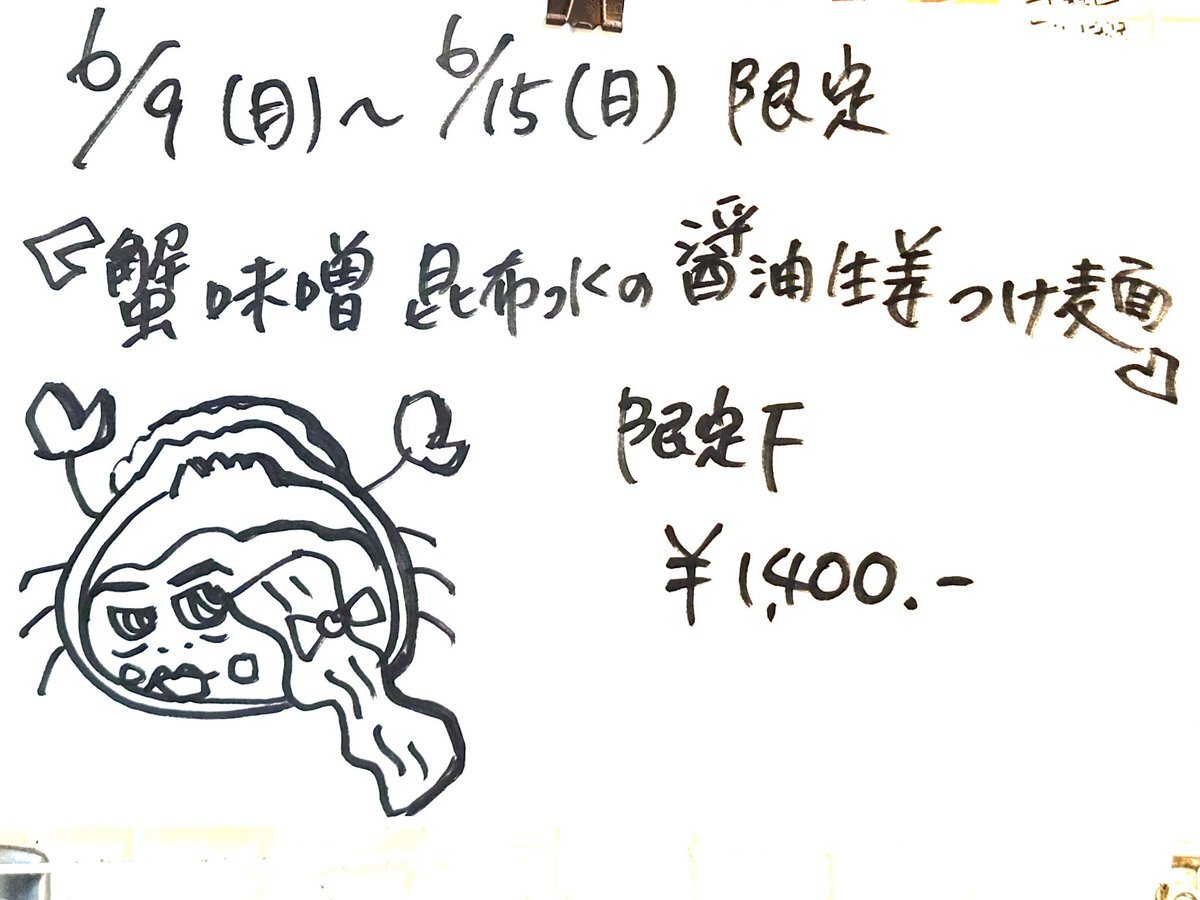 6/9(月)～6/15(日) 限定
『蟹味噌 昆布水の醤油生姜つけ麺』
限定F
¥1,400.-